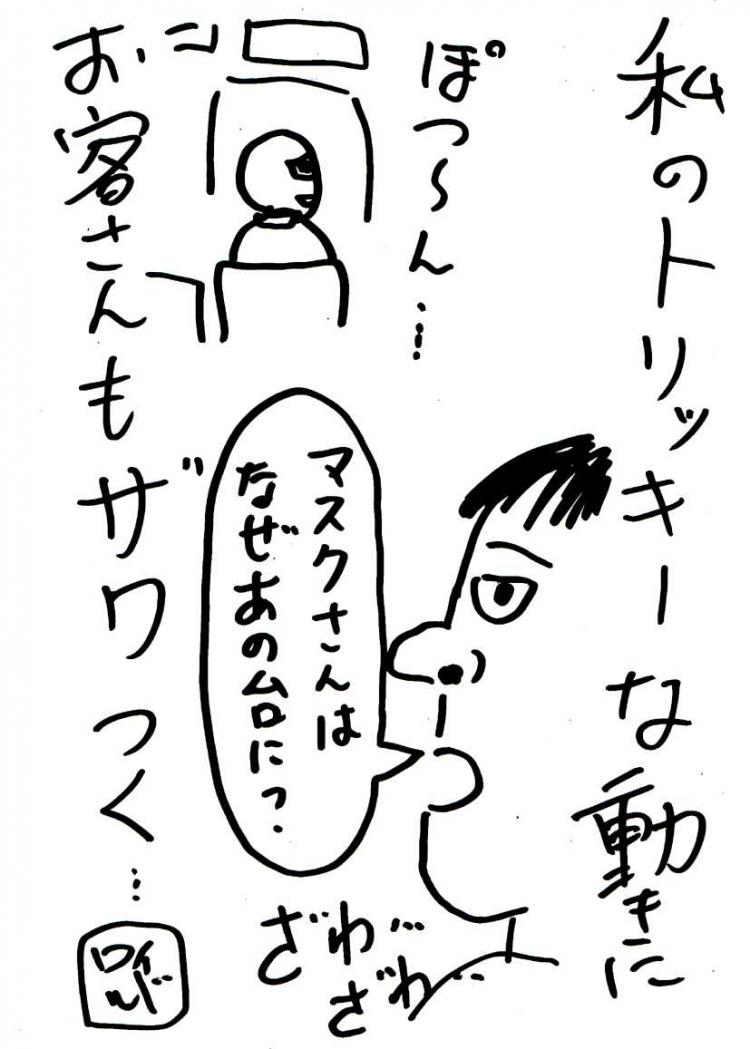 私のトリッキーな動きに
ぽつ〜ん…
マスクさんは
なぜあの台に?
ざわ…
ざわ…
お客さんもザワつく…